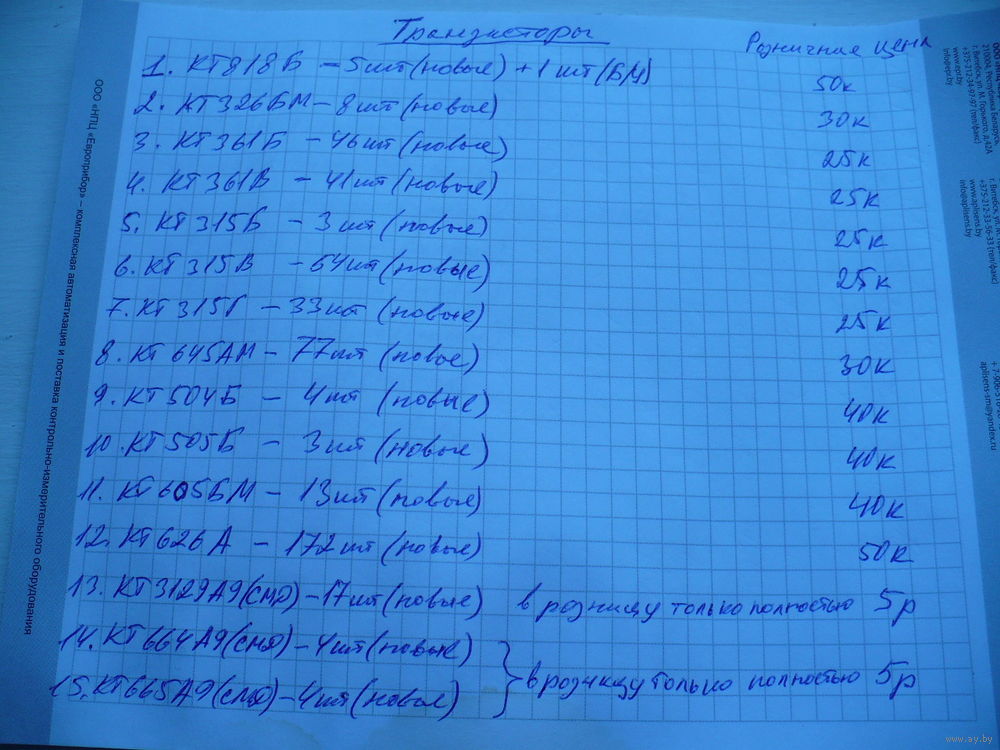 Транзисторы
Розничная цена
1. КТ818Б – 5шт(новые) + 1шт(БМ) 50к
2. КТ326БМ – 8шт(новые) 30к
3. КТ361Б – 46шт(новые) 25к
4. КТ361В – 41шт(новые) 25к
5. КТ315Б – 3шт(новые) 25к
6. КТ315В – 64шт(новые) 25к
7. КТ315Г – 33шт(новые) 25к
8. КТ645АМ – 77шт(новые) 30к
9. КТ504Б – 4шт(новые) 40к
10. КТ505Б – 3шт(новые) 40к
11. КТ605БМ – 13шт(новые) 40к
12. КТ626А – 172шт(новые) 50к
13. КТ3129А9(смд) – 17шт(новые) в розницу только полностью 5р
14. КТ664А9(смд) – 4шт(новые)
15. КТ665А9(смд) – 4шт(новые) в розницу только полностью 5р
ООО «НПЦ «Европрибор» – комплексная автоматизация и поставка контрольно-измерительного оборудования
210004, Республика Беларусь,
г. Витебск, ул. М. Горького, д.42А
+375-212-34-97-97 (тел/факс)
www.epr.by
info@epr.by
+375-212-33-56-33 (тел/факс)
www.aplisens.by
info@aplisens.by
aplisens-sm@yandex.ru
www.ay.by